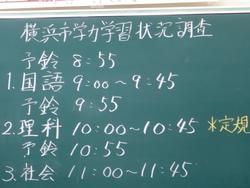 横浜市学力学習状況調査
予鈴 8:55
1.国語 9:00〜9:45
予鈴 9:55
2.理科 10:00〜10:45 *定規
予鈴 10:55
3.社会 11:00〜11:45